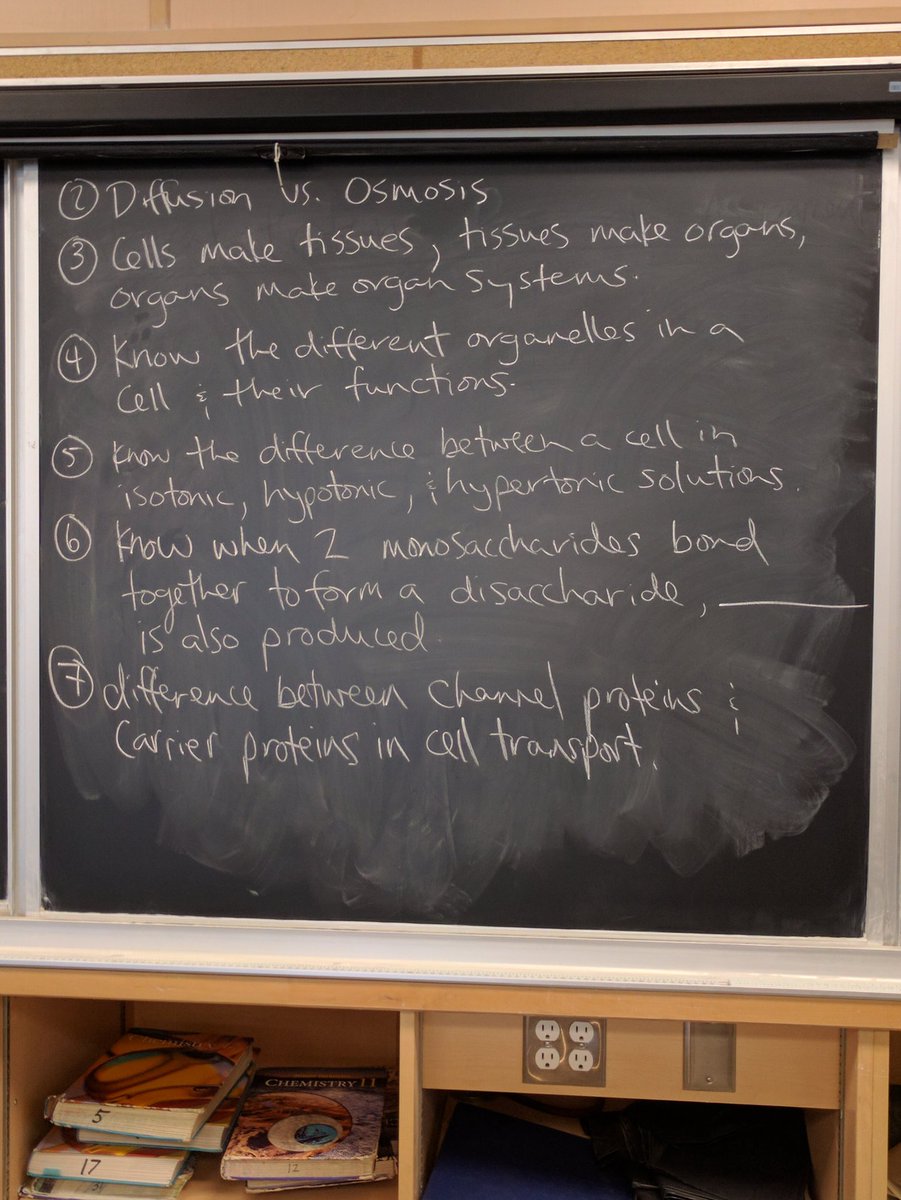 ② Diffusion vs. Osmosis
③ Cells make tissues, tissues make organs,
organs make organ systems.
④ Know the different organelles in a
cell & their functions.
⑤ Know the difference between a cell in
isotonic, hypotonic, & hypertonic solutions.
⑥ Know when 2 monosaccharides bond
together to form a disaccharide, ______
is also produced.
⑦ difference between channel proteins &
Carrier proteins in cell transport.
Chemistry
5
CHEMISTRY 11
17
12